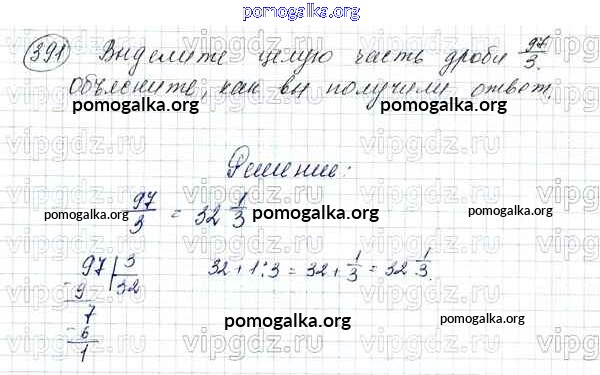 pomogalka.org
391 Выделите целую часть дроби 97/3.
объясните, как вы получили ответ.
pomogalka.org pomogalka.org
vipgdz.com vipgdz.com vipgdz.com
Решение:
97/3 = 32 1/3
pomogalka.org pomogalka.org pomogalka.org
97 | 3 32+1:3 = 32+1/3 = 32 1/3.
- 9 32
7
- 6
1
pomogalka.org pomogalka.org
vipgdz.com vipgdz.com vipgdz.com